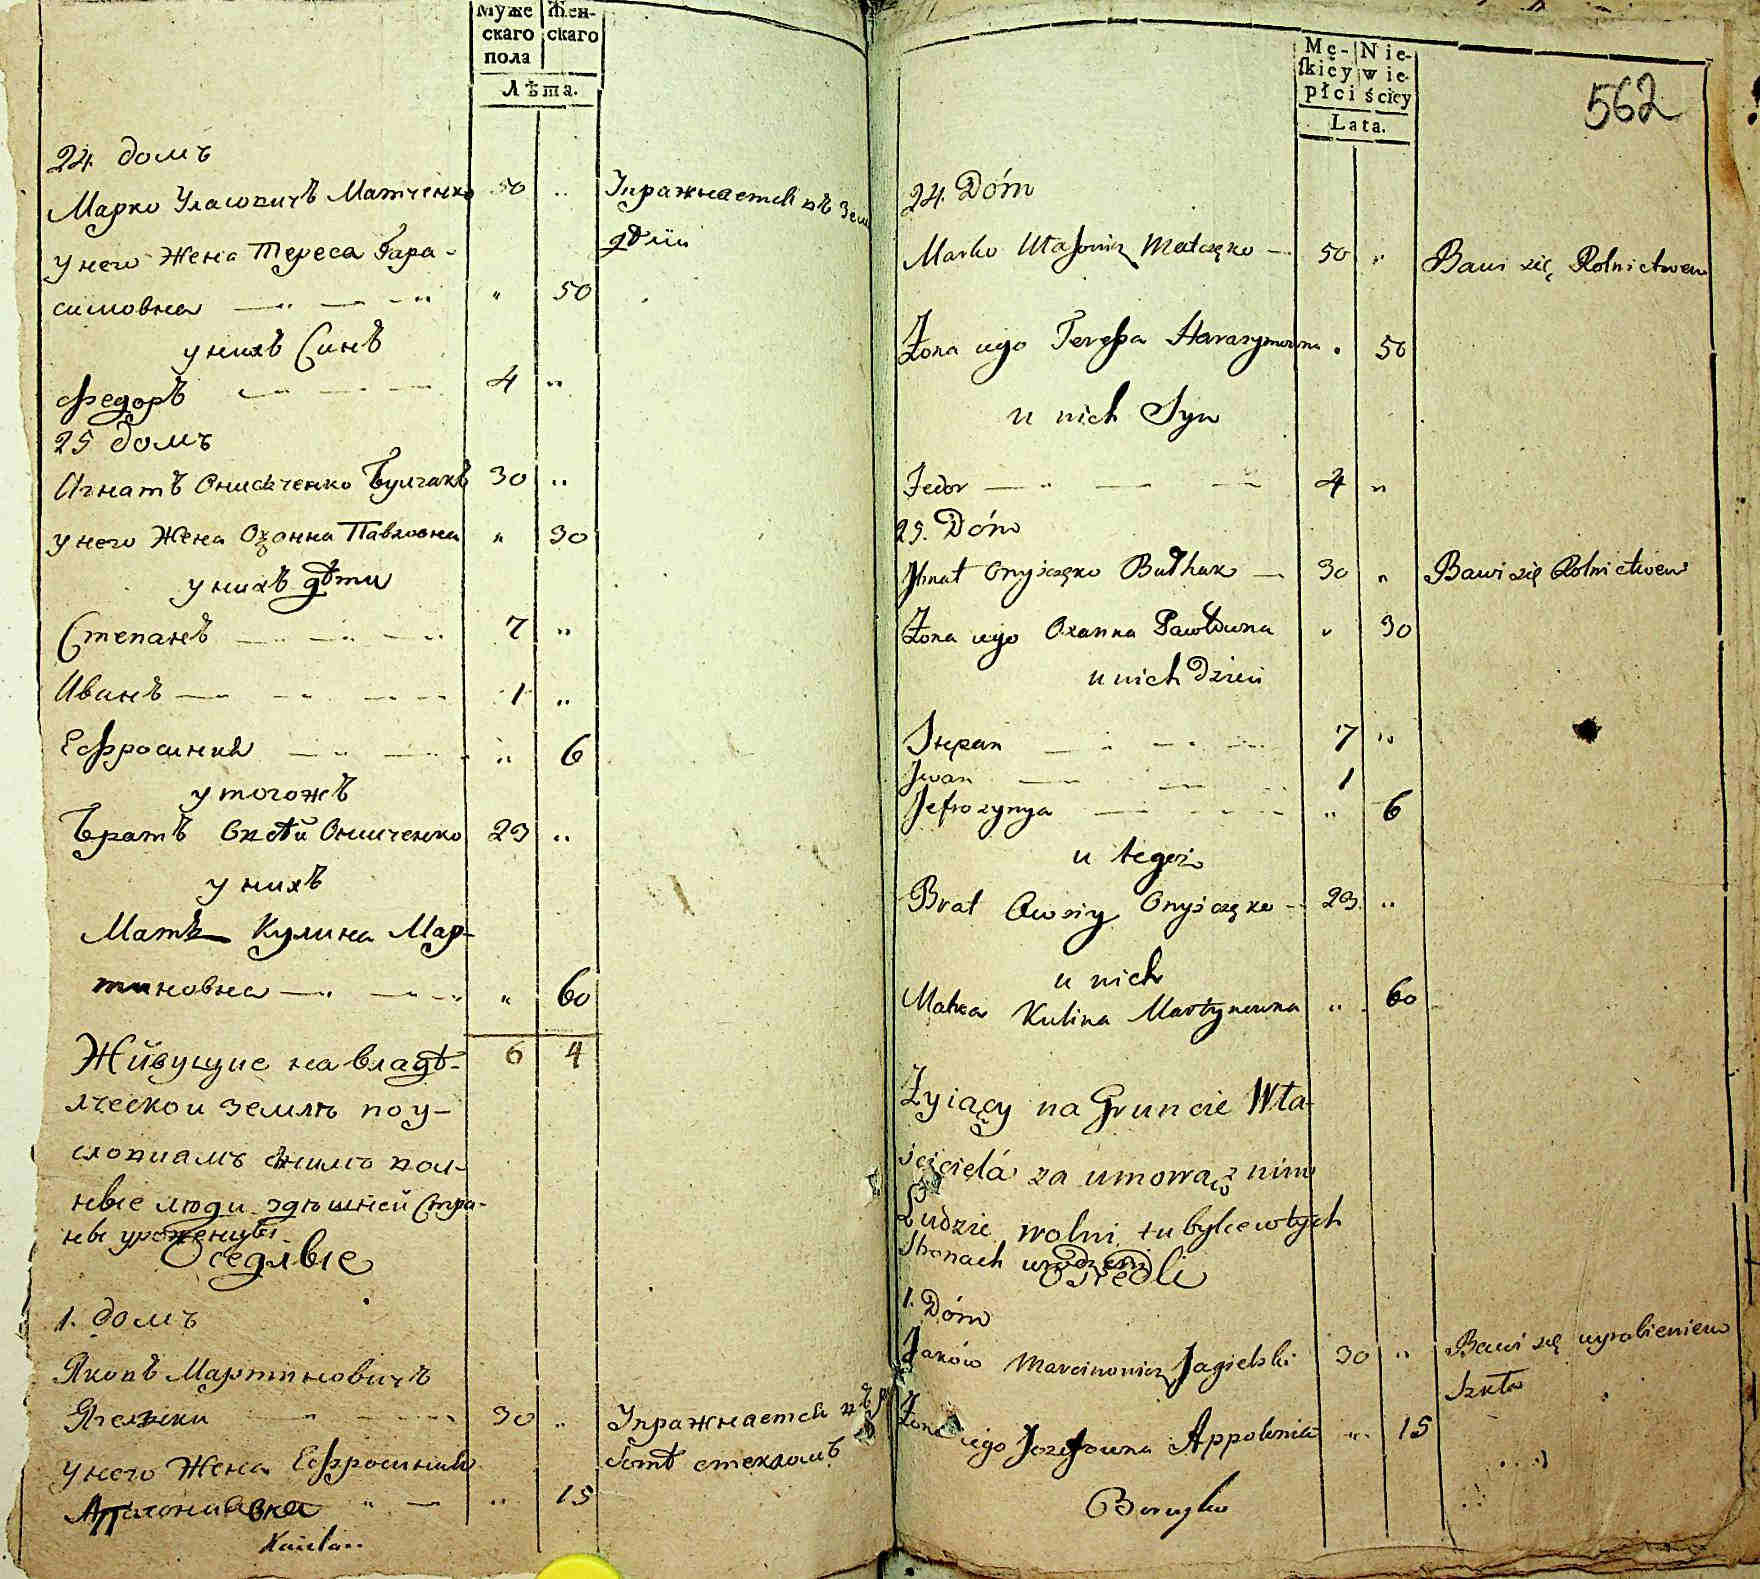 Муже Жен-
скаго скаго
пола
Лѣта.
24. домъ
Марко Уласовичъ Матченко 50 "
Упражнается въ Зем
дѣлiи
у него Жена Тереса Гара-
симовна " 50
у нихъ Синъ
Федоръ 4 "
25 домъ
Игнатъ Онисченко Булгакъ 30 "
у него Жена Оханна Павловна " 30
у нихъ дѣти
Степанъ 7 "
Иванъ 1 "
Ефросиния " 6
у тогожъ
Братъ Онисченко 29 "
у нихъ
Мать Кулина Мар-
тиновна " 60
6 4
Живущие на владѣ-
лческои землѣ по у-
словиамъ снимъ вол-
ные люди здѣшней Стра-
ны уроженцы
Оседлые
1. домъ
Яковъ Мартиновичъ
Ягелски 30 "
Упражнается въ
ботѣ стекломъ
у него Жена Ефросиния
" 15
Mę- Nie-
skiey wie-
płci ściey
Lata.
562
24. Dóm
Marko Ułasowicz Matczęko 50 "
Bawi się Rolnictwem
Żona iego Teressa Harasymowna " 50
u nich Syn
Fedor 4 "
25. Dóm
Ihnat Onyszczęko Bułhak 30 "
Bawi się Rolnictwem
Żona iego Oxanna Pawłowna " 30
u nich Dzieci
Stepan 7 "
Iwan 1
Jefrozynya " 6
u tegoż
Brat Owsiy Onyszczęko 29 "
u nich
Matka Kulina Martynowna " 60
Żyiący na Gruncie Wła-
ściciela za umową z nim
Ludzie wolni tubylce w tych
Stronach urodzeni
Osiedli
1. Dóm
Jaków Marcinowicz Jagielski 30 "
Bawi się wyrobieniem
Szkła
Żona iego Jozefowna Appolonia " 15